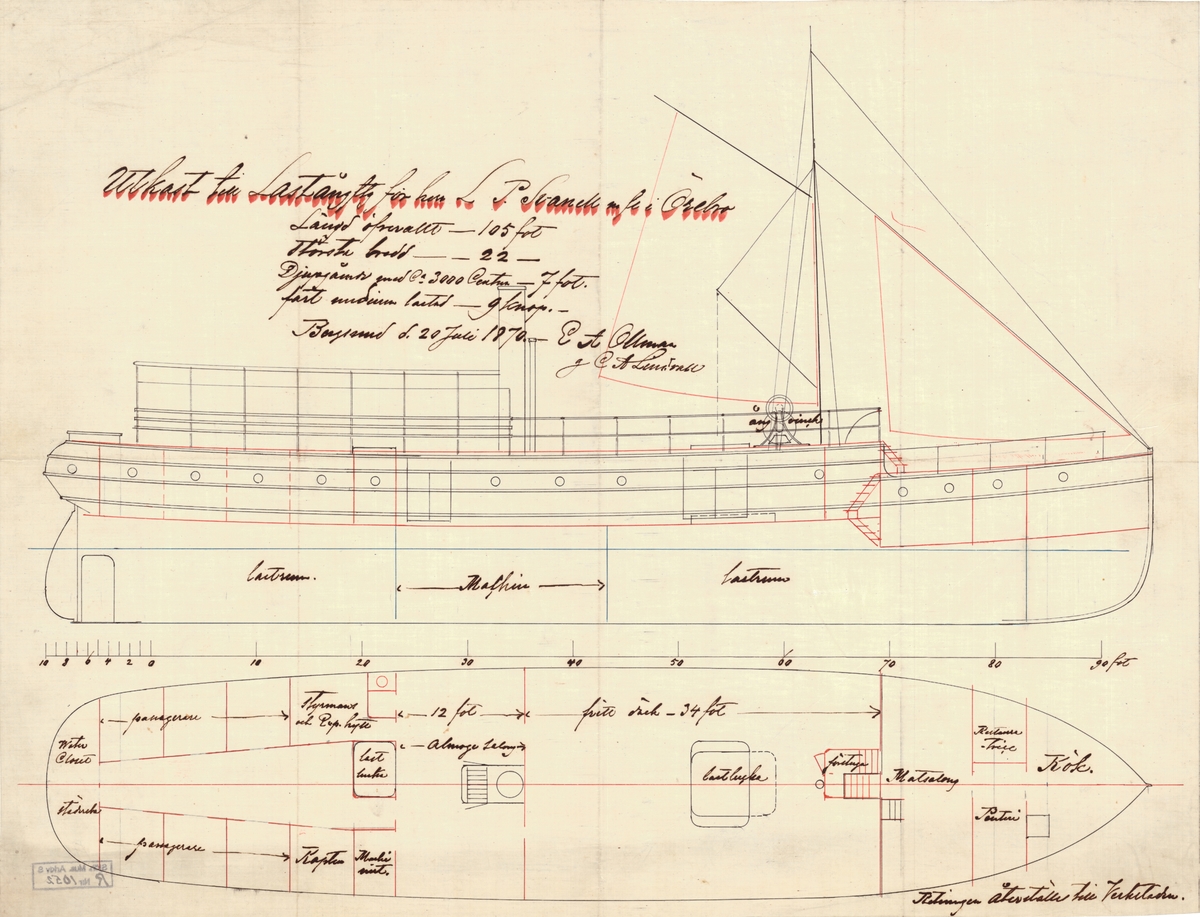 Utkast till Lastångftg för herr L P. Svanell m fl i Örebro
Längd öfverallt — 105 fot
Största bredd — — 22 —
Djupgående med Ca 3000 Centner — 7 fot.
fart medium lastad — 9 knop. —
Bergsund d. 20 Juli 1870. — E A Ollman
g C A Lindvall
ång vinch
lastrum.
Maskin
lastrum
10 8 6 4 2 0 10 20 30 40 50 60 70 80 90 fot
passagerare
Styrmans
och Rep. hytt
12 fot
fritt däck — 34 fot
Almoge Salong
Water
Closet
last
lucka
lastlugka
förstuga
Matsalong
Kök.
Städerska
Penteri
passagerare
Kapten
Maski
nist.
Ritningen återställe till Verkstaden.
R Nr 1052